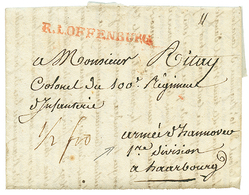 11
R.1.OFFENBURG
a Monsieur Ritay
Colonel du 100e Régiment
d'Infanterie
armée d'hannovre
1ere division
a haarbourg